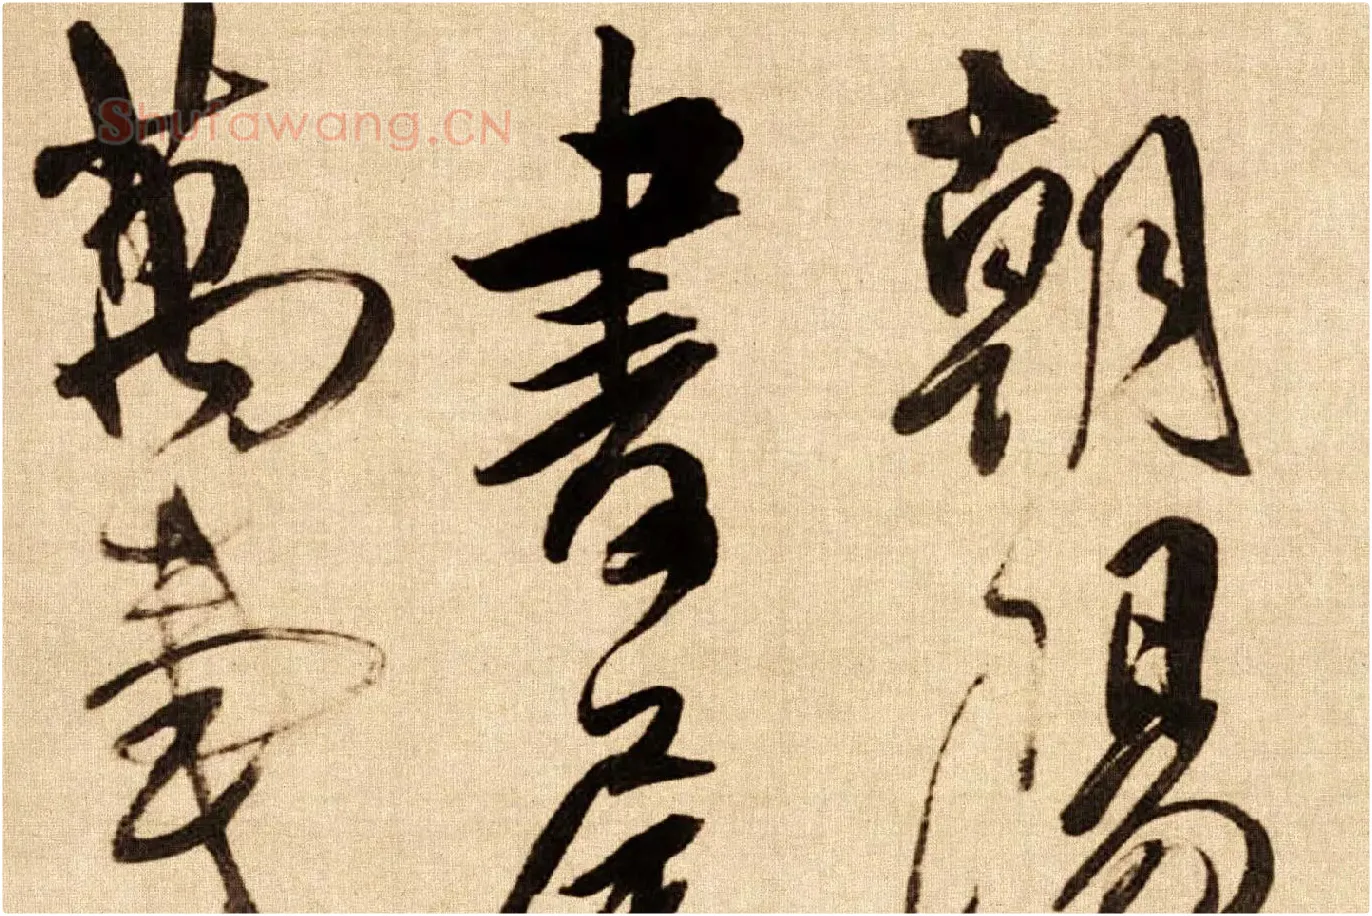 朝陽
書
萬
Shufawang.CN